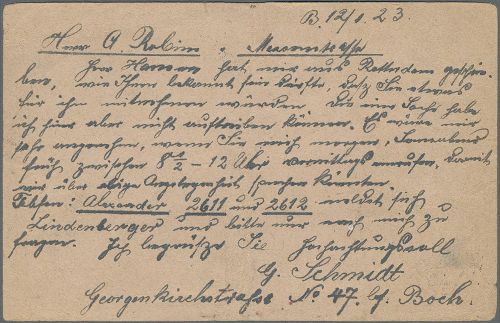 B. 12/1. 23.
Herr A. Rubin,
Herr Hanson hat mir aus Rotterdam geschrie-
ben, wie Ihnen bekannt sein dürfte, daß Sie etwas
für ihn mitnehmen würden. Die eine Sache habe
ich hier aber nicht auftreiben können. Es wäre mir
sehr angenehm, wenn Sie mich morgen, Sonnabend
früh zwischen 8 1/2 – 12 Uhr vormittags anrufen, damit
wir über obige Angelegenheit sprechen könnten.
Telefon: Alexander 2611 und 2612 meldet sich
Lindenberger und bitte nur nach mich zu
fragen. Ich begrüße Sie Hochachtungsvoll
G. Schmidt
Georgenkirchstrasse No 47. bf. Boch.